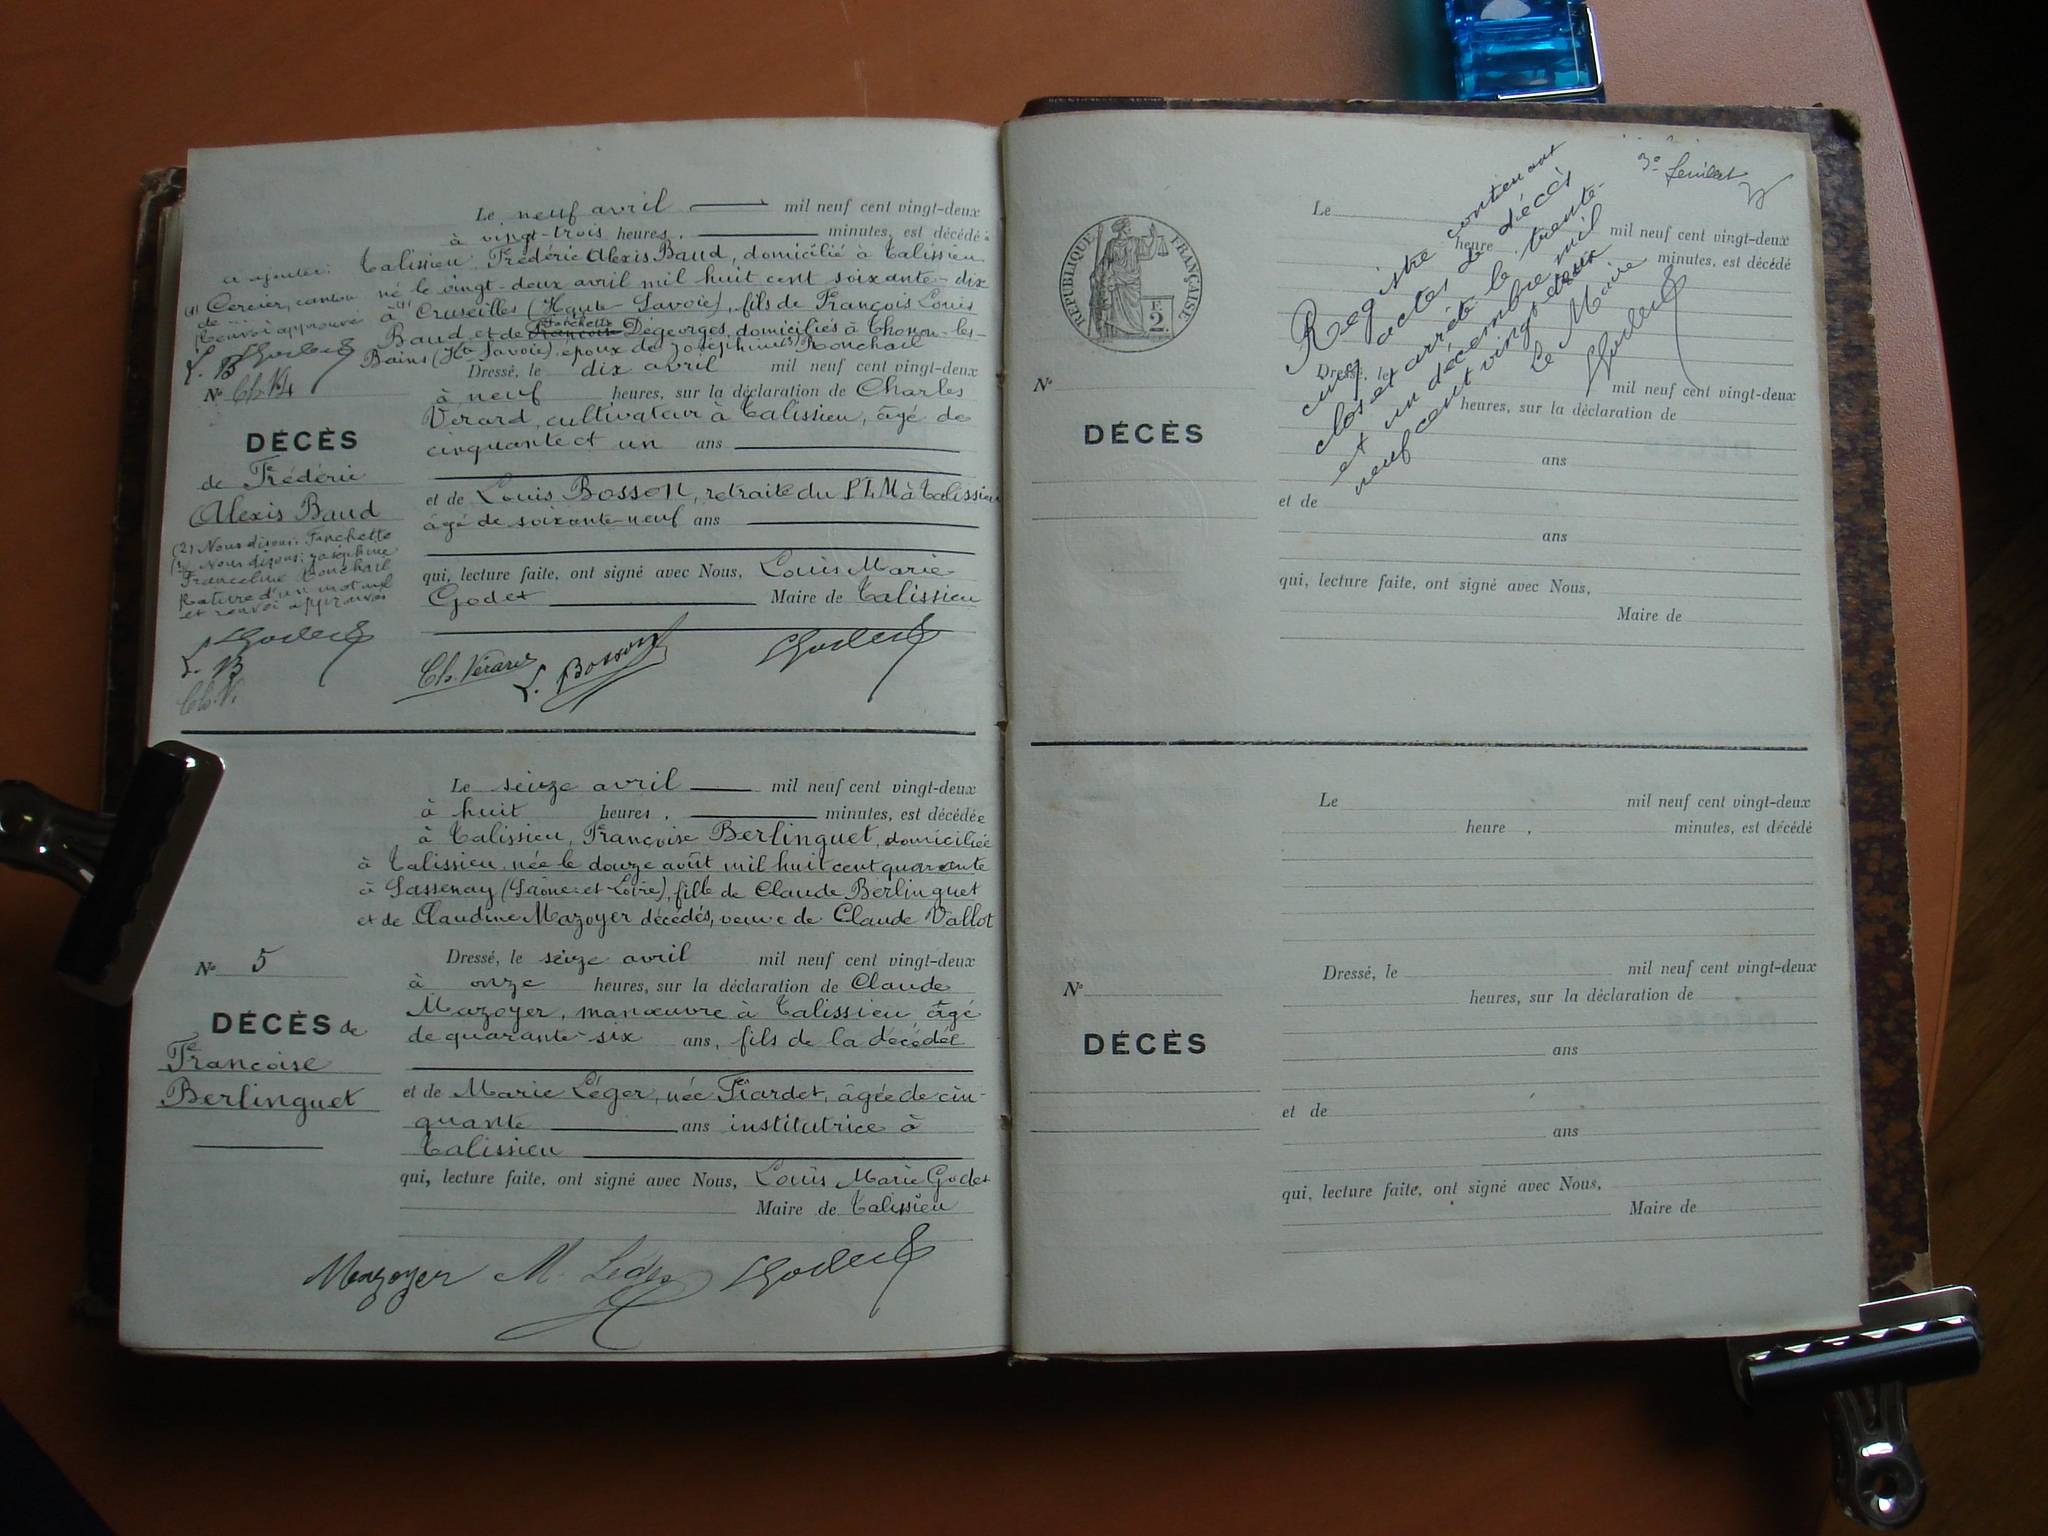 Le neuf avril mil neuf cent vingt-deux
à vingt-trois heures, minutes, est décédé à
Talissieu Frédéric Alexis Baud, domicilié à Talissieu
né le vingt-deux avril mil huit cent soixante-dix
à (1) Cruseilles (Haute-Savoie), fils de François Louis
Fanchette
Baud et de Françoise Degeorges, domiciliés à Thonon-les-
Bains (Hte Savoie), époux de Joséphine Ronchail
a ajouter:
(1) Cercier, canton
de
Renvoi approuvé
L. B
Ch. V
Dressé, le dix avril mil neuf cent vingt-deux
à neuf heures, sur la déclaration de Charles
Verard, cultivateur à Talissieu, âgé de
cinquante et un ans
et de Louis Bosson, retraité du PLM à Talissieu
âgé de soixante-neuf ans
qui, lecture faite, ont signé avec Nous, Louis Marie
Godet Maire de Talissieu
Ch. Verard L. Bosson LGodet
No 4
DÉCÈS
de Frédéric
Alexis Baud
(2) Nous disons: Fanchette
(3) Nous disons: Joséphine
Franceline Ronchail
Rature d'un mot nul
et renvoi approuvés
LGodet
L. B
Ch. V.
Le seize avril mil neuf cent vingt-deux
à huit heures, minutes, est décédée
à Talissieu, Françoise Berlinguet, domiciliée
à Talissieu, née le douze août mil huit cent quarante
à Sassenay (Saône-et-Loire), fille de Claude Berlinguet
et de Claudine Mazoyer décédés, veuve de Claude Vallot
Dressé, le seize avril mil neuf cent vingt-deux
à onze heures, sur la déclaration de Claude
Mazoyer, manœuvre à Talissieu âgé
de quarante-six ans, fils de la décédée
et de Marie Léger, née Fiardet, âgée de cin-
quante ans institutrice à
Talissieu
qui, lecture faite, ont signé avec Nous, Louis Marie Godet
Maire de Talissieu
Mazoyer M. Léger LGodet
No 5
DÉCÈS de
Françoise
Berlinguet
3e feuillet
RÉPUBLIQUE FRANÇAISE
2
Registre contenant
cinq actes de décès
clos et arrêté le trente-
et un décembre mil
neuf cent vingt-deux
Le Maire
LGodet
Le mil neuf cent vingt-deux
heure minutes, est décédé
Dressé, le mil neuf cent vingt-deux
heures, sur la déclaration de
ans
et de
ans
qui, lecture faite, ont signé avec Nous,
Maire de
No
DÉCÈS
Le mil neuf cent vingt-deux
heure , minutes, est décédé
Dressé, le mil neuf cent vingt-deux
heures, sur la déclaration de
ans
et de
ans
qui, lecture faite, ont signé avec Nous,
Maire de
No
DÉCÈS